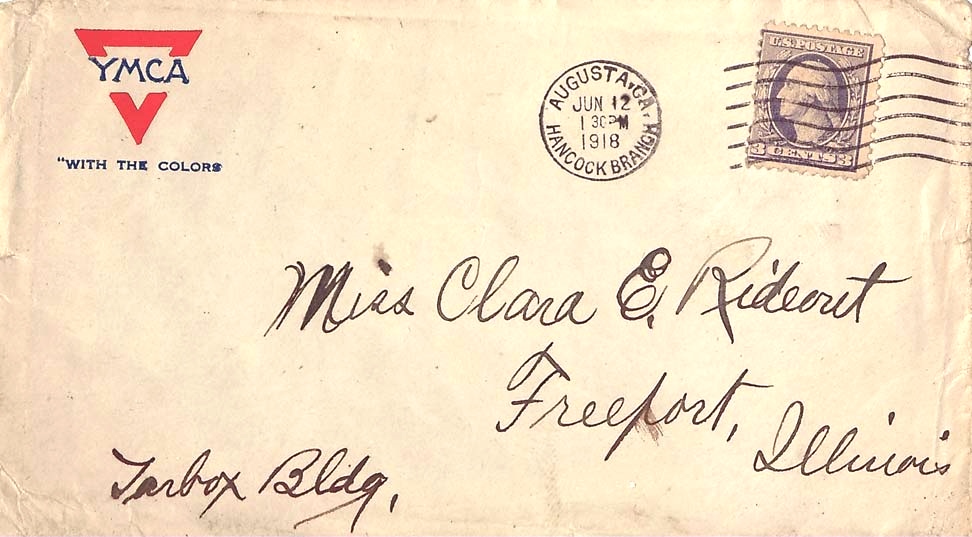 YMCA
"WITH THE COLORS
AUGUSTA, GA.
JUN 12
1 30 PM
1918
HANCOCK BRANCH
U.S. POSTAGE
3 CENTS 3
Miss Clara E. Rideout
Freeport,
Illinois
Tarbox Bldg.